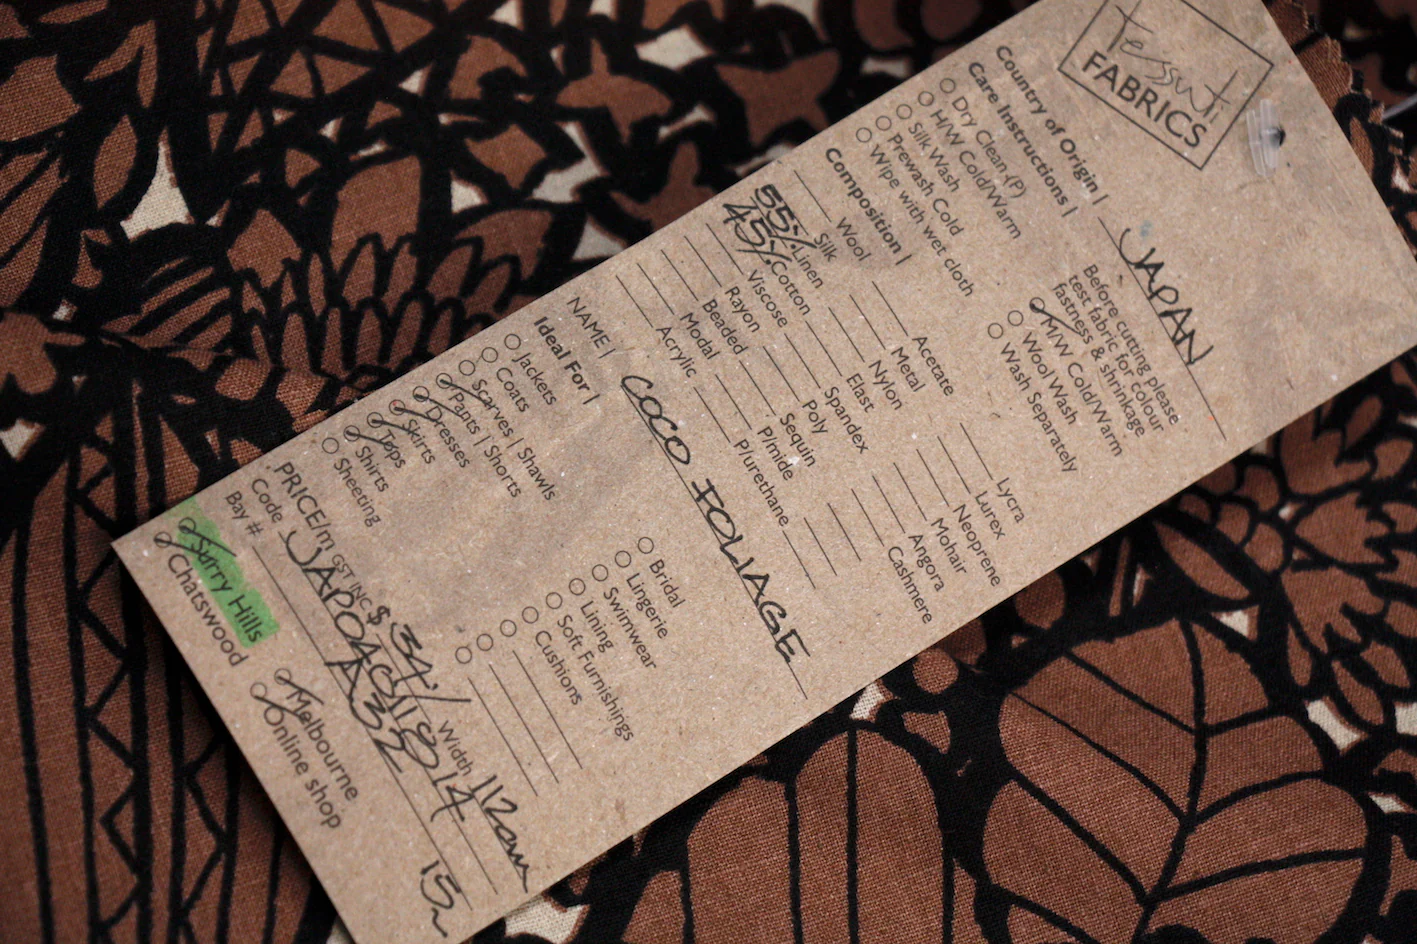 Tessuti
FABRICS
Country of Origin | JAPAN
Care Instructions |
Before cutting please
test fabric for colour
fastness & shrinkage
Dry Clean (P)
H/W Cold/Warm
Silk Wash
Prewash Cold
Wipe with wet cloth
M/W Cold/Warm
Wool Wash
Wash Separately
Composition |
Wool
Silk
55% Linen
45% Cotton
Viscose
Rayon
Beaded
Modal
Acrylic
Acetate
Metal
Nylon
Elast
Spandex
Poly
Sequin
P/mide
P/urethane
Lycra
Lurex
Neoprene
Mohair
Angora
Cashmere
NAME | COCO FOLIAGE
Ideal For |
Jackets
Coats
Scarves | Shawls
Pants | Shorts
Dresses
Skirts
Tops
Shirts
Sheeting
Bridal
Lingerie
Swimwear
Lining
Soft Furnishings
Cushions
PRICE/m GST INC $ 34./ Width 112cm
Code
Bay # A32 15m
Surry Hills
Chatswood
Melbourne
Online shop